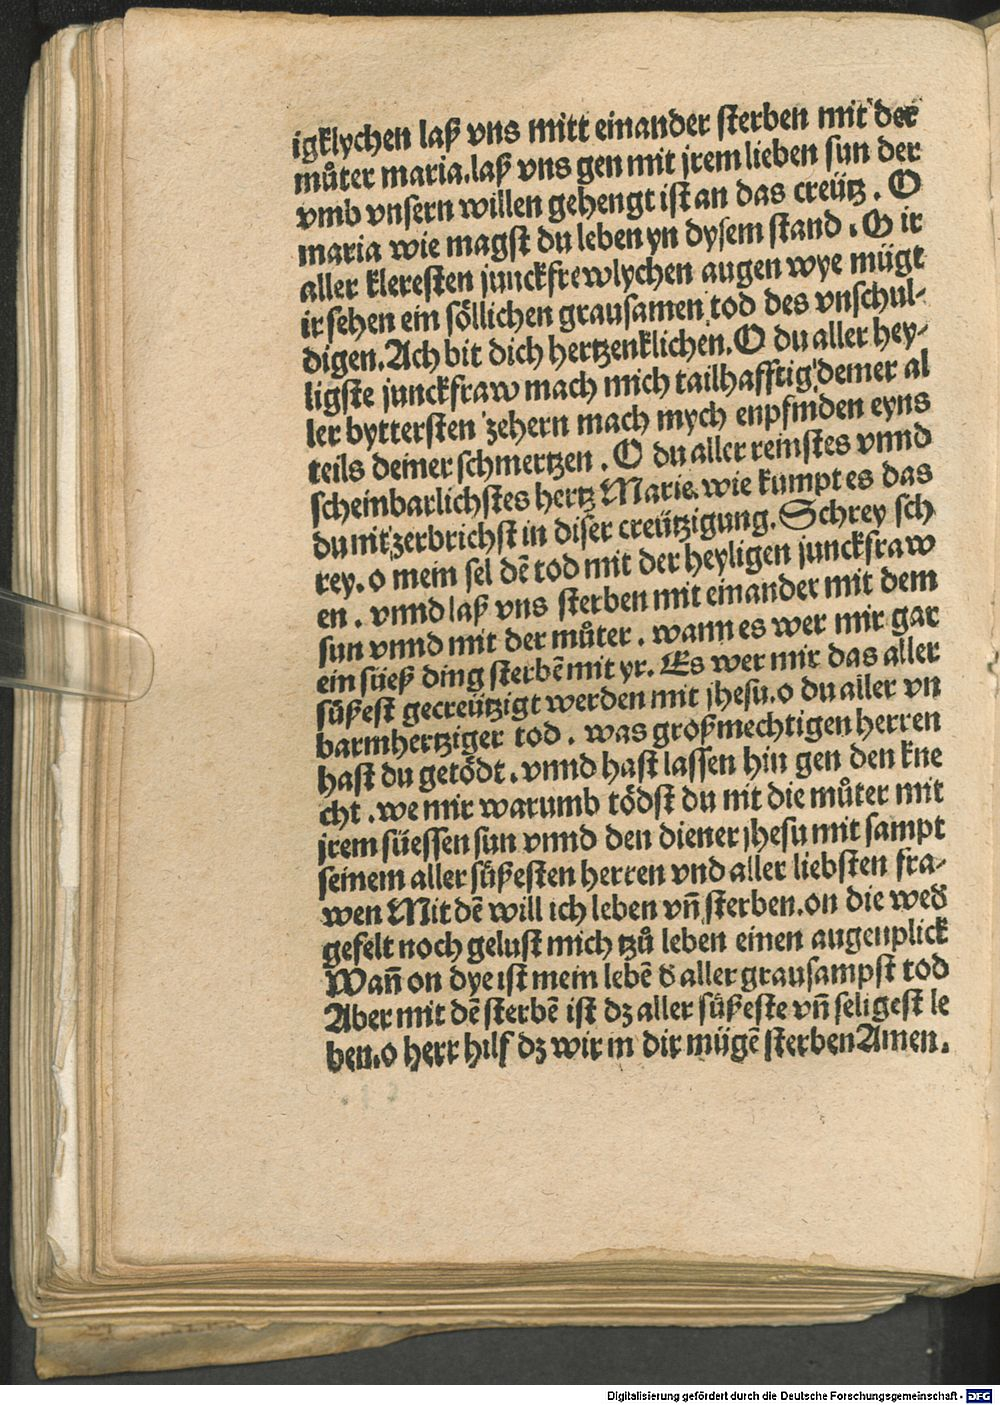 igklychen laß vns mitt einander sterben mit der
můter maria. laß vns gen mit jrem lieben sun der
vmb vnsern willen gehengt ist an das creütz. O
maria wie magst du leben yn dysem stand. O ir
aller kleresten junckfrewlychen augen wye mügt
ir sehen ein söllichen grausamen tod des vnschul-
digen. Ach bit dich hertzenklichen. O du aller hey-
ligste junckfraw mach mich tailhafftig deiner al
ler byttersten zehern mach mych enpfinden eyns
teils deiner schmertzen. O du aller reinstes vnnd
scheinbarlichstes hertz Marie. wie kumpt es das
du nit zerbrichst in diser creützigung. Schrey sch
rey. o mein sel dē tod mit der heyligen junckfraw
en. vnnd laß vns sterben mit einander mit dem
sun vnnd mit der můter. wann es wer mir gar
ein süeß ding sterbē mit yr. Es wer mir das aller
süßest gecreützigt werden mit jhesu. o du aller vn
barmhertziger tod. was großmechtigen herren
hast du getödt. vnnd hast lassen hin gen den kne
cht. we mir warumb tödst du nit die můter mit
jrem süessen sun vnnd den diener jhesu mit sampt
seinem aller süßesten herren vnd aller liebsten fra-
wen Mit dē will ich leben vn̄ sterben. on die wed̄
gefelt noch gelust mich tzů leben einen augenplick
Wan̄ on dye ist mein lebē d̄ aller grausampst tod
Aber mit dē sterbē ist dz aller süßeste vn̄ seligest le
ben. o herr hilf dz wir in dir mügē sterben Amen.
Digitalisierung gefördert durch die Deutsche Forschungsgemeinschaft - DFG